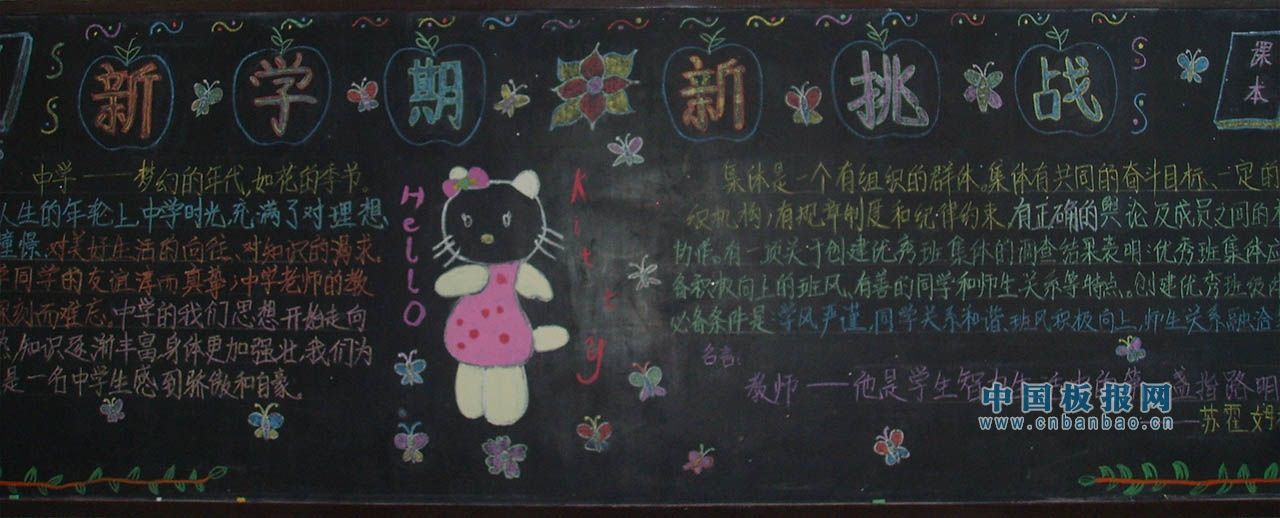 新学期 新挑战
课本
中学——梦幻的年代,如花的季节。
人生的年轮上,中学时光,充满了对理想
憧憬,对美好生活的向往、对知识的渴求。
同学的友谊 而真挚;中学老师的教
深刻而难忘。中学的我们思想开始走向
知识逐渐丰富,身体更加强壮,我们为
是一名中学生感到骄傲和自豪。
Hello
Kitty
集体是一个有组织的群体。集体有共同的奋斗目标、一定的
织机构;有规章制度和纪律约束,有正确的舆论及成员之间的
协作。有一项关于创建优秀班集体的调查结果表明:优秀班集体应
备积极向上的班风、友善的同学和师生关系等特点。创建优秀班级
必备条件是学风严谨,同学关系和谐,班风积极向上,师生关系融洽
名言:
教师——他是学生智力生活中的第 盏指路明
——苏霍姆
中国板报网
www.cnbanbao.cn